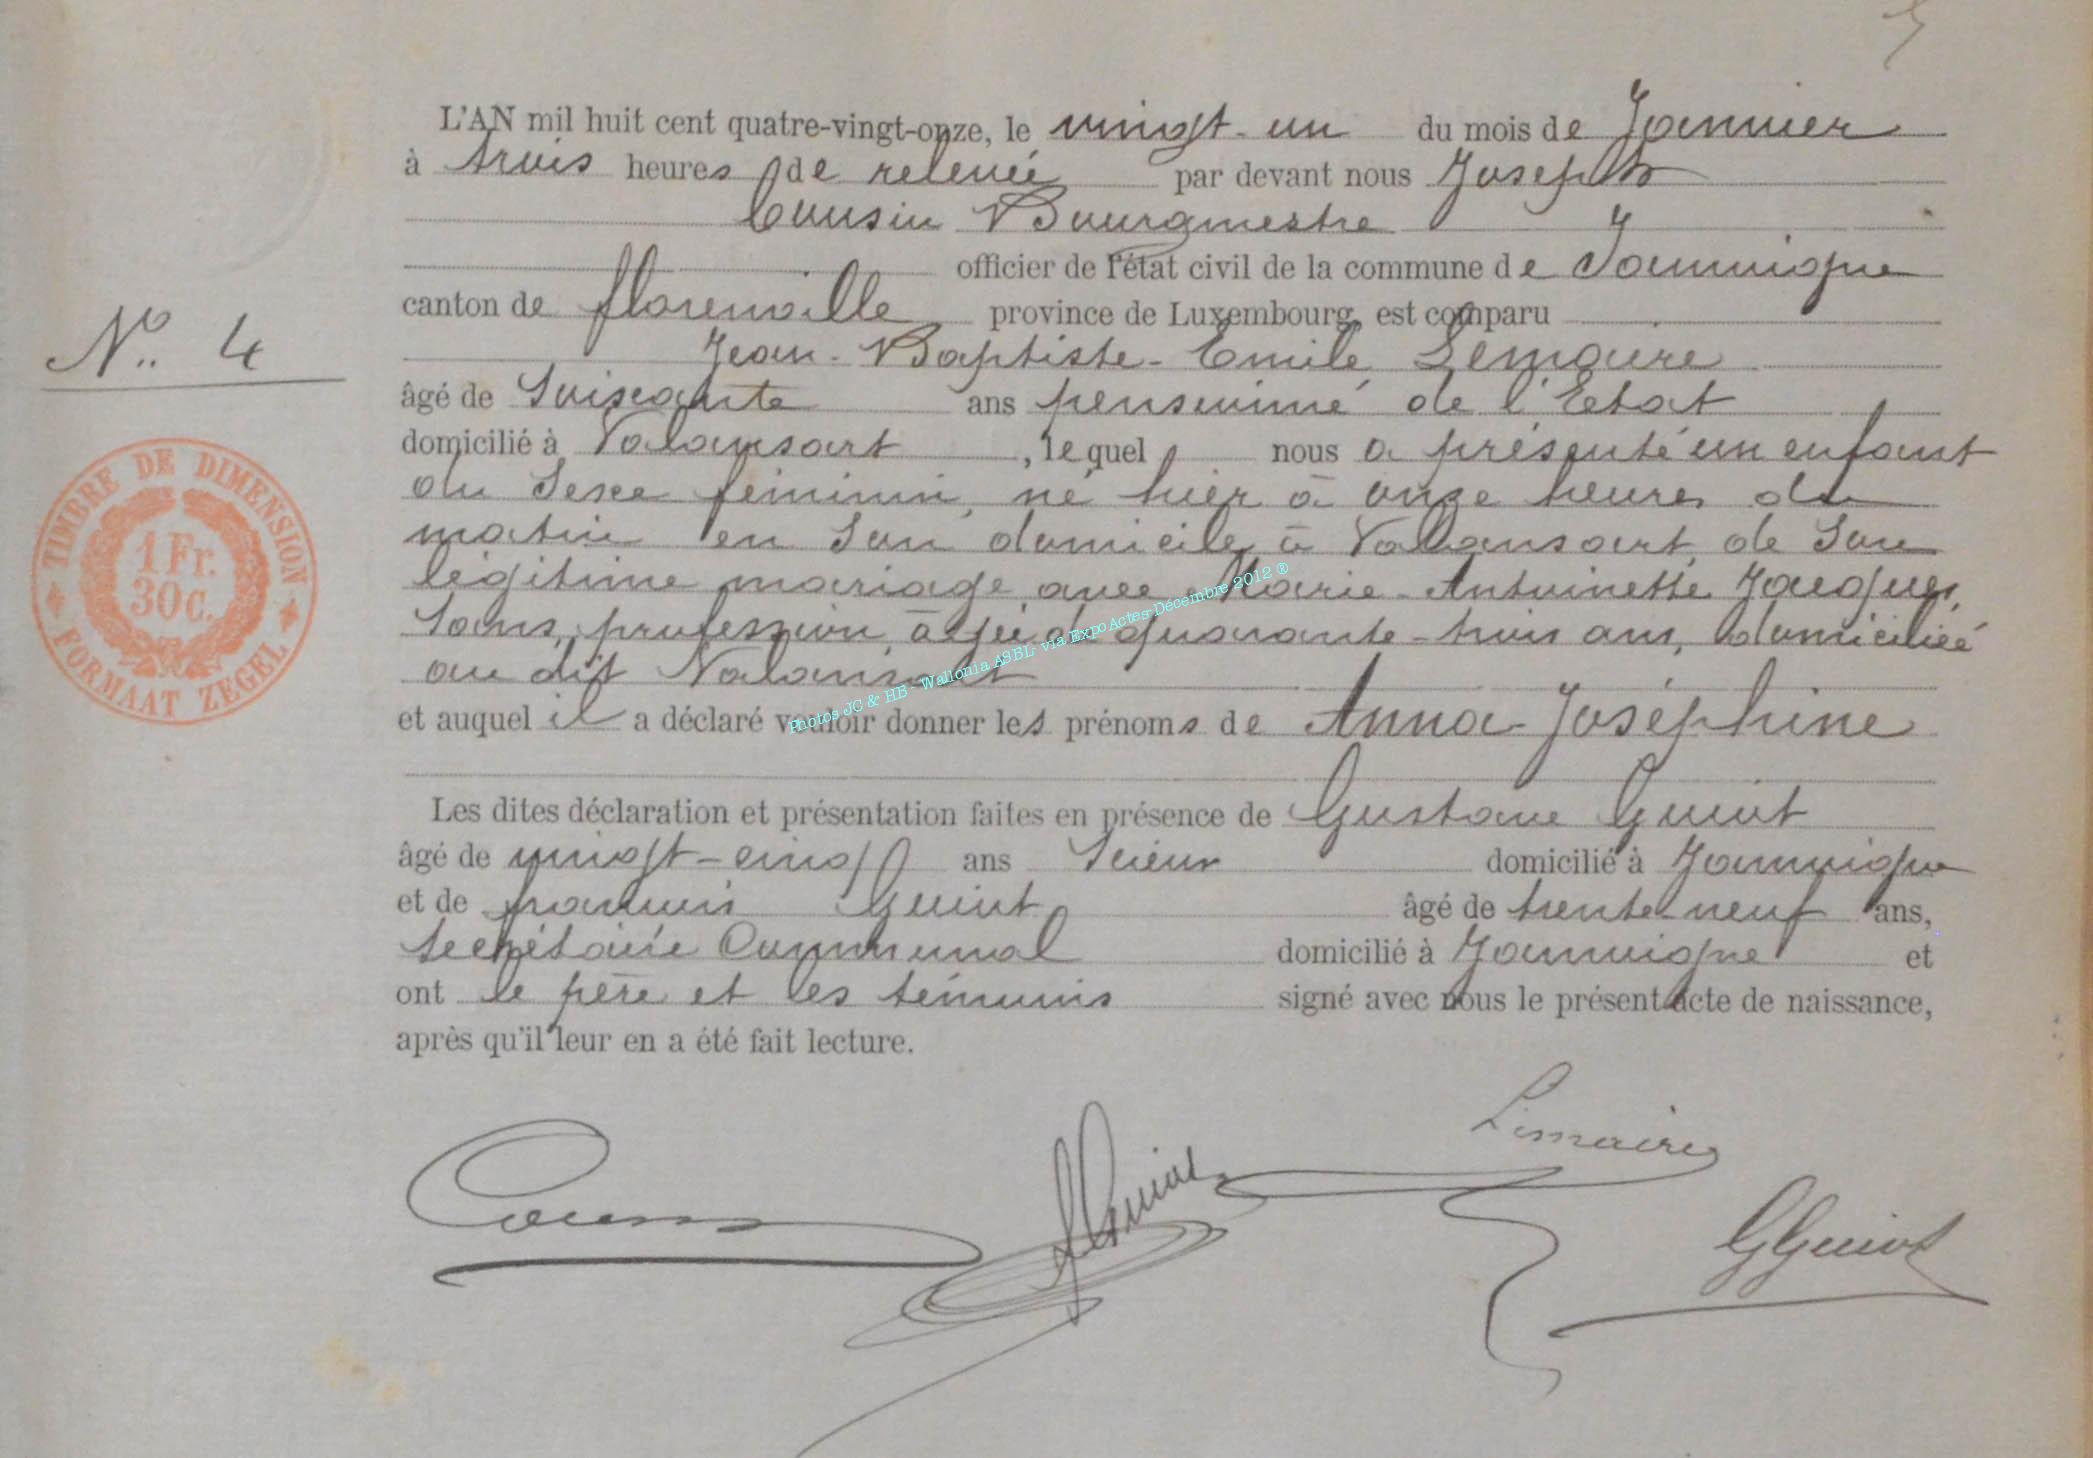 L'AN mil huit cent quatre-vingt-onze, le vingt-un du mois de Janvier
à trois heures de relevée par devant nous Joseph
Cousin Bourgmestre
officier de l'état civil de la commune de Jamoigne
canton de florenville province de Luxembourg, est comparu
N° 4
Jean-Baptiste-Emile Lemaire
âgé de Soixante ans pensionné de l'Etat
domicilié à Valansart, lequel nous a présenté un enfant
du Sexe féminin, né hier à onze heures du
matin en Son domicile à Valansart, de Son
légitime mariage avec Marie-Antoinette Jacques,
Sans profession, âgée de quarante-trois ans, domiciliée
au dit Valansart
et auquel il a déclaré vouloir donner les prénoms de Anna-Joséphine
TIMBRE DE DIMENSION
1 Fr.
30 c.
FORMAAT ZEGEL
Photos JC & HB - Wallonia ASBL via ExpoActes Décembre 2012 ®
Les dites déclaration et présentation faites en présence de Gustave Guiot
âgé de vingt-cinq ans Scieur domicilié à Jamoigne
et de françois Guiot âgé de trente-neuf ans,
Secrétaire Communal domicilié à Jamoigne et
ont le père et les témoins signé avec nous le présent acte de naissance,
après qu'il leur en a été fait lecture.
Lemaire
Cousin
Guiot
GGuiot